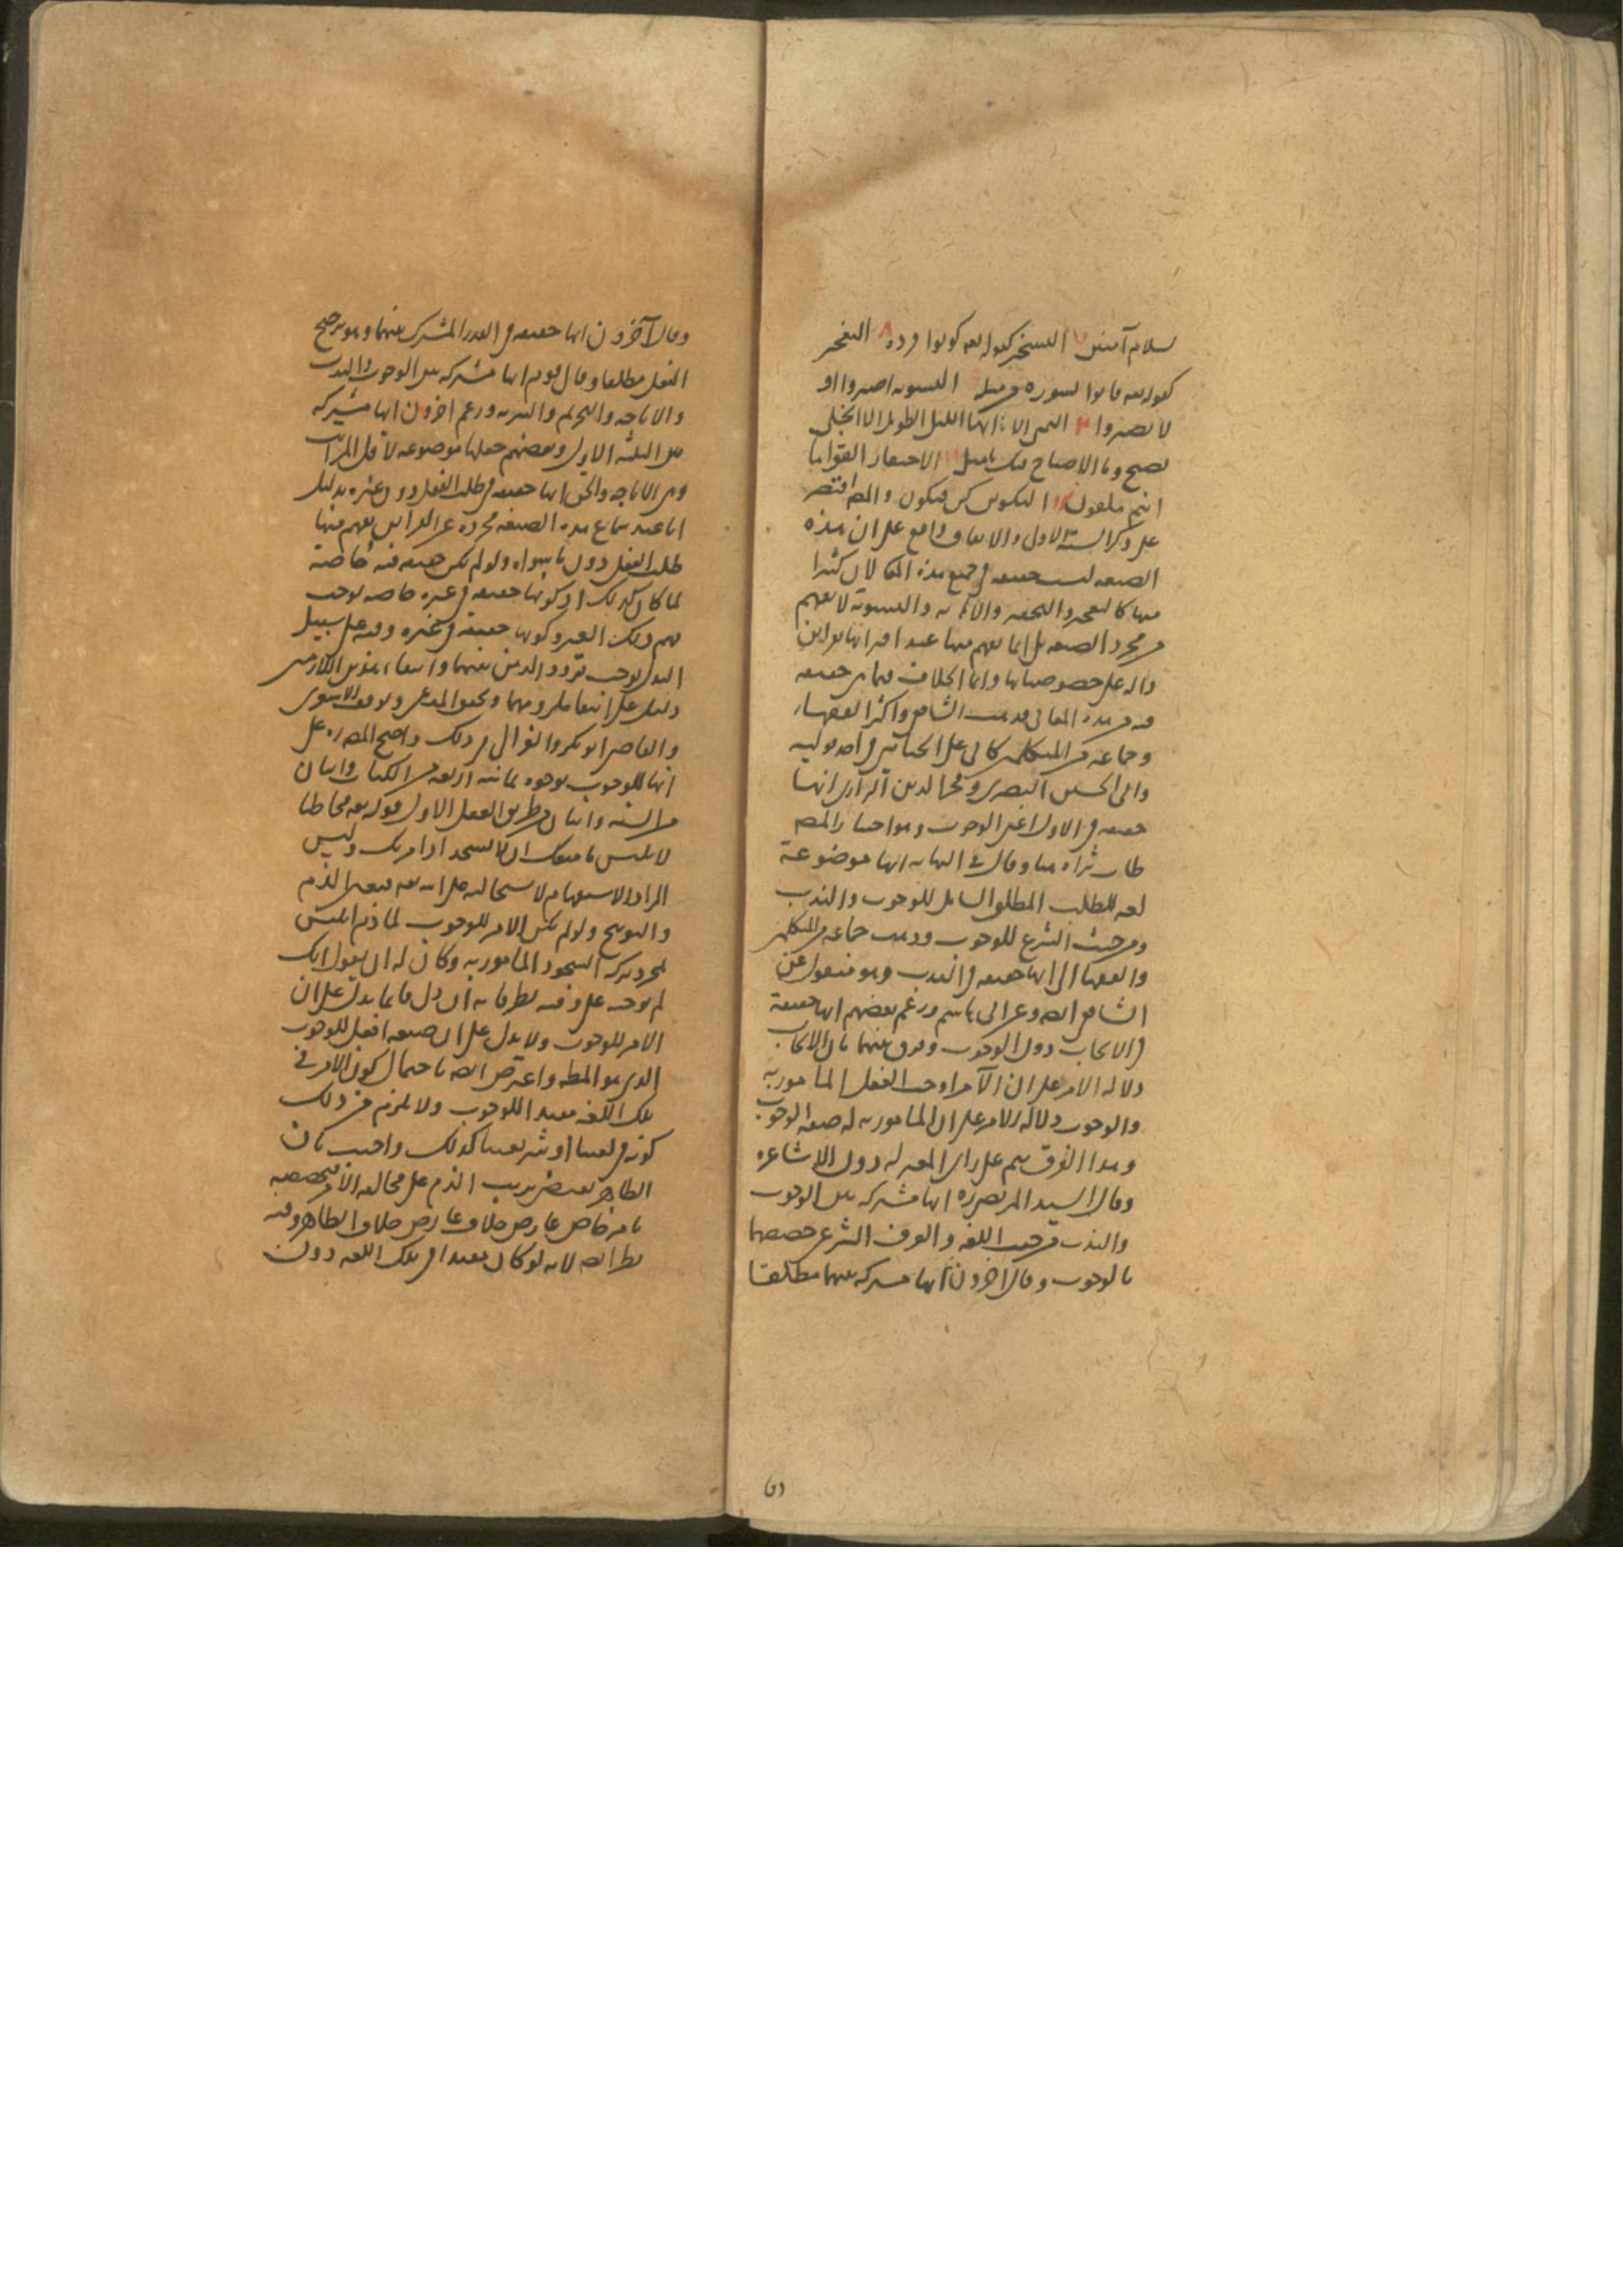 سلام آمنين ٧ التسخير كقوله تعه كونوا قردة ٨ التعجيز
كقوله تعه فاتوا بسورة من مثله التسوية اصبروا او
لا تصبروا التمنى الا ايها الليل الطويل الا انجلى
بصبح وما الاصباح منك بامثل الاحتقار القوا ما
انتم ملقون التكوين كن فيكون والمصـ اقتصر
على ذكر الستة الاول والاتفاق واقع على ان هذه
الصيغه ليست حقيقه فى جميع هذه المعانى لان كثيرا
منها كالتعجيز والتحقير والاهانه والتسوية لا يفهم
من مجرد الصيغه بل انما يفهم منها عند اقترانها بقراين
داله على خصوصياتها وانما الخلاف فيما هى حقيقه
فيه من هذه المعانى فذهب الشافعى واكثر الفقهاء
وجماعه من المتكلمين كابى على الجبائى فى احد قوليه
وابى الحسين البصرى وفخر الدين الرازى انها
حقيقه فى الاول اعنى الوجوب وهو اختيار المصـ
طاب ثراه هنا وقال فى النهايه انها موضوعة
لغه للطلب المطلق الشامل للوجوب والندب
ومن حيث الشرع للوجوب وذهب جماعه من المتكلمين
والفقها الى انها حقيقه فى الندب وهو منقول عن
الشافعى ايضا وعن ابى هاشم وزعم بعضهم انها حقيقة
فى الايجاب دون الوجوب وفرق بينهما بان الايجاب
دلاله الامر على ان الآمر اوجب الفعل المامور به
والوجوب دلاله الامر على ان المامور به له صفه الوجوب
وهذا الفرق يتم على راى المعتزله دون الاشاعره
وقال السيد المرتضى ره انها مشتركه بين الوجوب
والندب من حيث اللغه والعرف الشرعى خصصها
بالوجوب وقال اخرون انها مشتركه بينهما مطلقا
وقال آخرون انها حقيقه فى القدر المشترك بينهما وهو ترجيح
الفعل مطلقا وقال قوم انها مشتركه بين الوجوب والندب
والاباحه والتحريم والتنزيه وزعم اخرون انها مشتركه
بين الثلثه الاول وبعضهم جعلها موضوعه لاقل المراتب
وهى الاباحه والحق انها حقيقه فى طلب الفعل دون غيره بدليل
انا عند سماع هذه الصيغه مجرده عن القراين نفهم منها
طلب الفعل دون ما سواه ولو لم تكن حقيقه فيه خاصة
لما كان كذلك اذ كونها حقيقه فى غيره خاصه يوجب
فهم ذلك الغير وكونها حقيقة فى غيره وفيه على سبيل
البدل يوجب تردد الذهن بينهما وانتفاء هذين اللازمين
دليل على انتفا ملزومهما وتحقق المدعى وتوقف الاشعرى
والقاضى ابو بكر والغزالى فى ذلك واحتج المصـ ره على
انها للوجوب بوجوه ثمانيه اربعه من الكتاب واثنان
من السنه واثنان من طريق العقل الاول قوله تعه مخاطبا
لابليس ما منعك ان لا تسجد اذ امرتك وليس
المراد الاستفهام لاستحالته على الله تعه فتعين الذم
والتوبيخ ولو لم يكن الامر للوجوب لما ذم ابليس
لمجرد تركه السجود المامور به وكان له ان يقول انك
لم توجبه على وفيه نظر فانه ان دل فانما يدل على ان
الامر للوجوب ولا يدل على ان صيغه افعل للوجوب
الذى هو المطـ واعترض ايضا باحتمال كون الامر فى
تلك اللغه مفيدا للوجوب ولا يلزم من ذلك
كونه فى لغتنا او شريعتنا كذلك واجيب بان
الظاهر يقتضى ترتيب الذم على مخالفه الامر فتخصيصه
بامر خاص عارض خلاف عارض خلاف الظاهر وفيه
نظر ايضا لانه لو كان مفيدا فى تلك اللغه دون